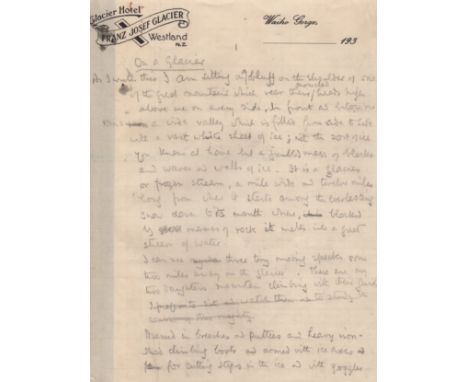 Glacier Hotel
FRANZ JOSEF GLACIER
Westland
N.Z.
Waiho Gorge,
193
1
On a Glacier
As I write this I am sitting on the shoulder of one
of the great mountains which rear their heads high
above me on every side. In front and below me
a wide valley which is filled from side to side
with a vast white sheet of ice; not the sort of ice
you know at home but a jumbled mass of blocks
and waves and walls of ice. It is a glacier
or frozen stream, a mile wide and twelve miles
long from where it starts among the everlasting
snow down to its mouth where blocked
by masses of rock it melts into a great
stream of water.
I can see three tiny moving specks some
two miles away on the glacier. These are my
two daughters mountain climbing with their guide
Dressed in breeches and puttees and heavy iron-
shod climbing boots and armed with ice axes
for cutting steps in the ice and with goggles